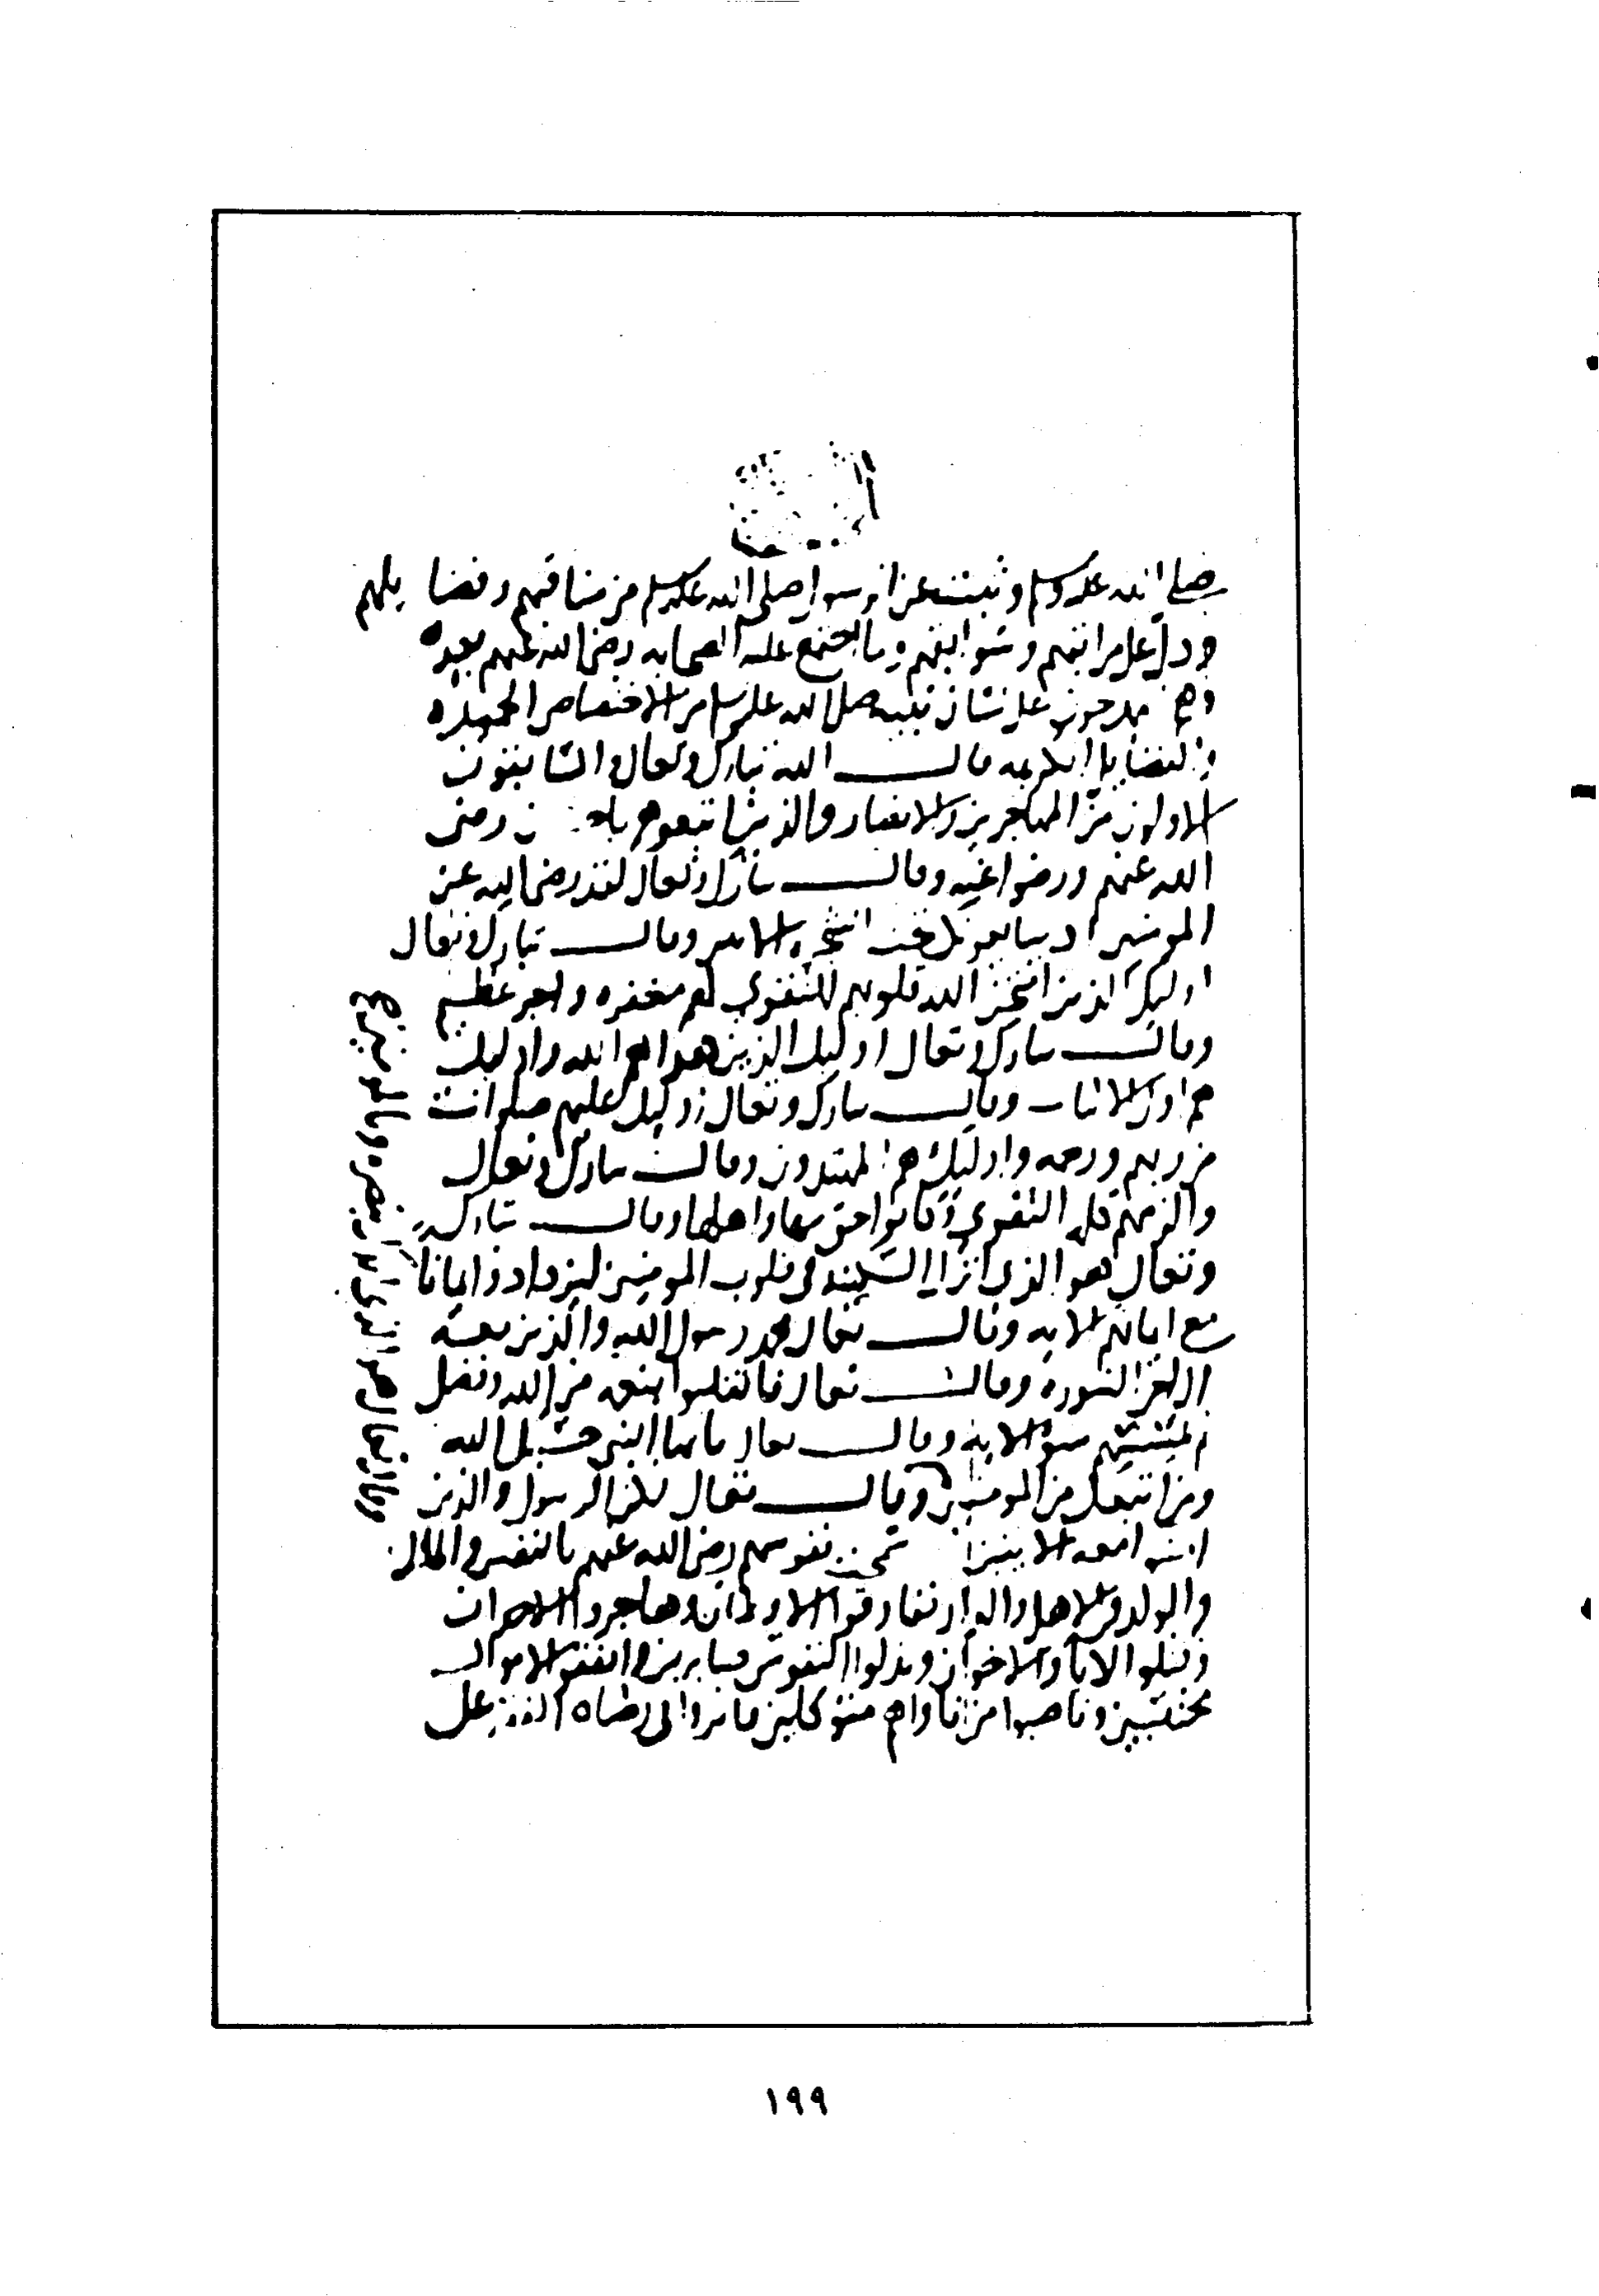 صلى الله عليه وسلم وثبت عن الرسول صلى الله عليه وسلم من مناقبهم وفضايلهم
ودل على مراتبهم وسوابقهم وما اجتمع عليه الصحابه رضى الله عنهم بعده
على لسان نبيه صلى الله عليه وسلم من الاختصاص
والفضايل قال الله تبارك وتعالى والسابقون
الاولون من المهاجرين والانصار والذين اتبعوهم باحسان رضى
الله عنهم ورضوا عنه وقال تبارك وتعالى لقد رضى الله عن
المومنين اذ يبايعونك تحت الشجره الايه وقال تبارك وتعالى
اوليك الذين امتحن الله قلوبهم للتقوى لهم مغفره واجر عظيم
وقال تبارك وتعالى اوليك الذين هداهم الله واوليك
هم اولو الالباب وقال تبارك وتعالى اوليك عليهم صلوات
من ربهم ورحمه واوليك هم المهتدون وقال تبارك وتعالى
والزمهم كلمه التقوى وكانوا احق بها واهلها وقال تبارك
وتعالى هو الذى انزل السكينه فى قلوب المومنين ليزدادوا ايمانا
مع ايمانهم الايه وقال تعالى محمد رسول الله والذين معه
الى اخر السوره وقال تعالى فانقلبوا بنعمه من الله وفضل
لم يمسسهم سوء الايه وقال تعالى يا ايها النبى حسبك الله
ومن اتبعك من المومنين وقال تعالى لكن الرسول والذين
امنوا معه الايتين نفوسهم رضى الله عنهم بالنفس والمال
والولد والاهل والدار ففارقوا الاوطان وهاجروا الاخوان
وقتلوا الابا والاخوان وبذلوا النفوس صابرين وانفقوا الاموال
محتسبين وناصبوا من ناواهم متوكلين فاثروا رضاه على
١٩٩